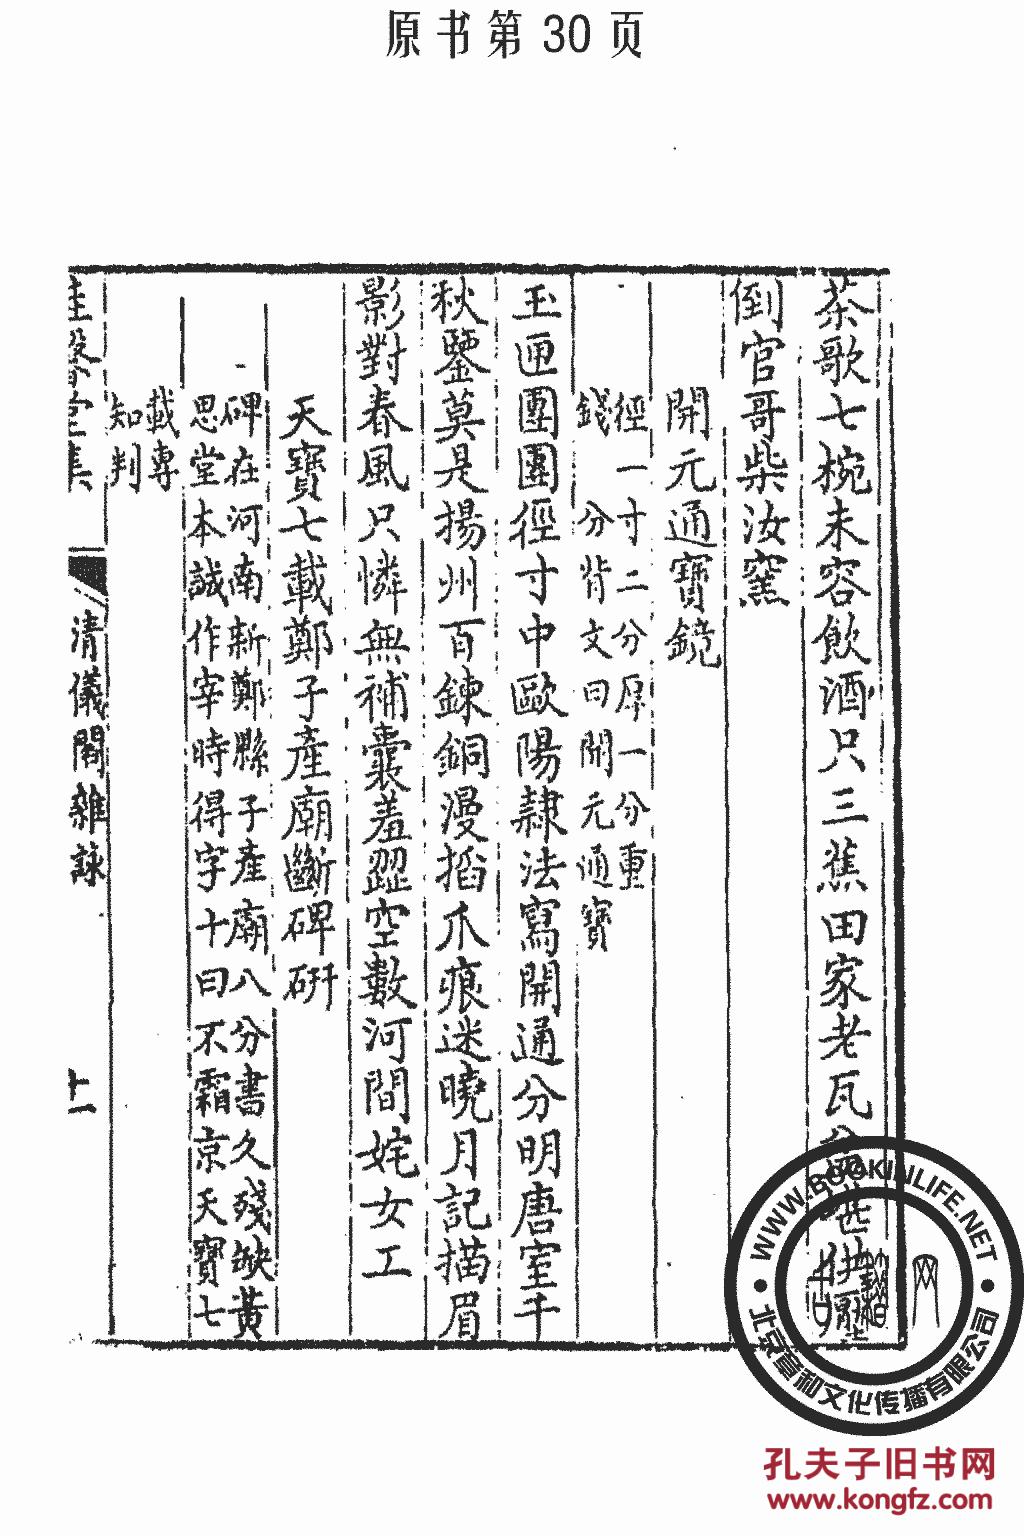 原书第30页
茶歌七椀未容飲酒只三蕉田家老瓦盆堪供
倒官哥柴汝窯
開元通寶鏡
徑一寸二分厚一分重
錢 分背文曰開元通寶
玉匣團團徑寸中歐陽隸法寫開通分明唐室千
秋鑒莫是揚州百鍊銅漫搯爪痕迷曉月記描眉
影對春風只憐無補囊羞澀空數河間姹女工
天寶七載鄭子產廟斷碑硏
碑在河南新鄭縣子產廟八分書久殘缺黃
思堂本誠作宰時得字十曰不霜京天寶七
載專
知判
桂馨堂集
清儀閣雜詠
十一
WWW.BOOKINLIFE.NET
北京章和文化传播有限公司
孔夫子旧书网
www.kongfz.com